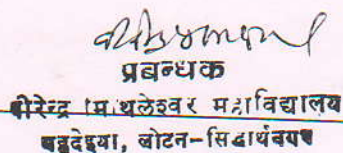 प्रबन्धक
वीरेन्द्र मिथलेश्वर महाविद्यालय
लोटन-सिद्धार्थनगर